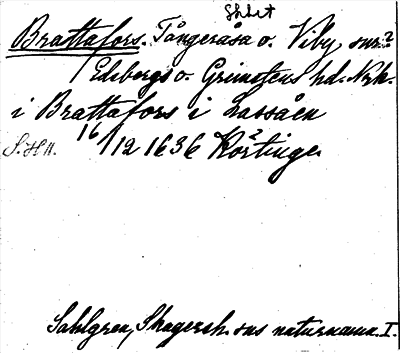 Skhet
Brattafors. Tångeråsa o. Viby snr?
Edsbergs o. Grimstens hd. Nrk.
i Brattafors i Lassåen
S.H.H. 16/12 1636 Körtinge
Sahlgren, Skagersh. sns naturnamn. I.